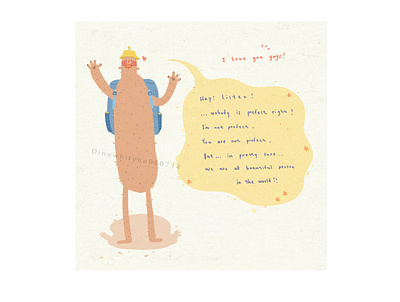 I Love you guys!
Hey! Listen!
...nobody is prefect right!
I'm not prefect.
You are not prefect.
But... im pretty sure..
We are al beautiful person
in the world!!